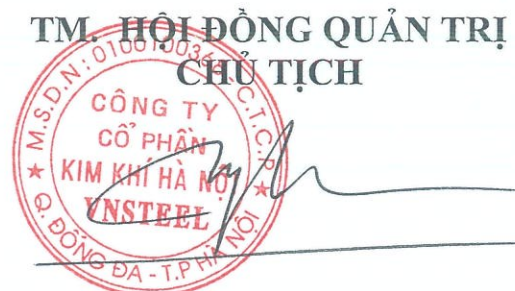 TM. HỘI ĐỒNG QUẢN TRỊ
CHỦ TỊCH
M.S.D.N: 0100100368 C.T.C.P
CÔNG TY
CỔ PHẦN
KIM KHÍ HÀ NỘI
VNSTEEL
Q. ĐỐNG ĐA - T.P HÀ NỘI